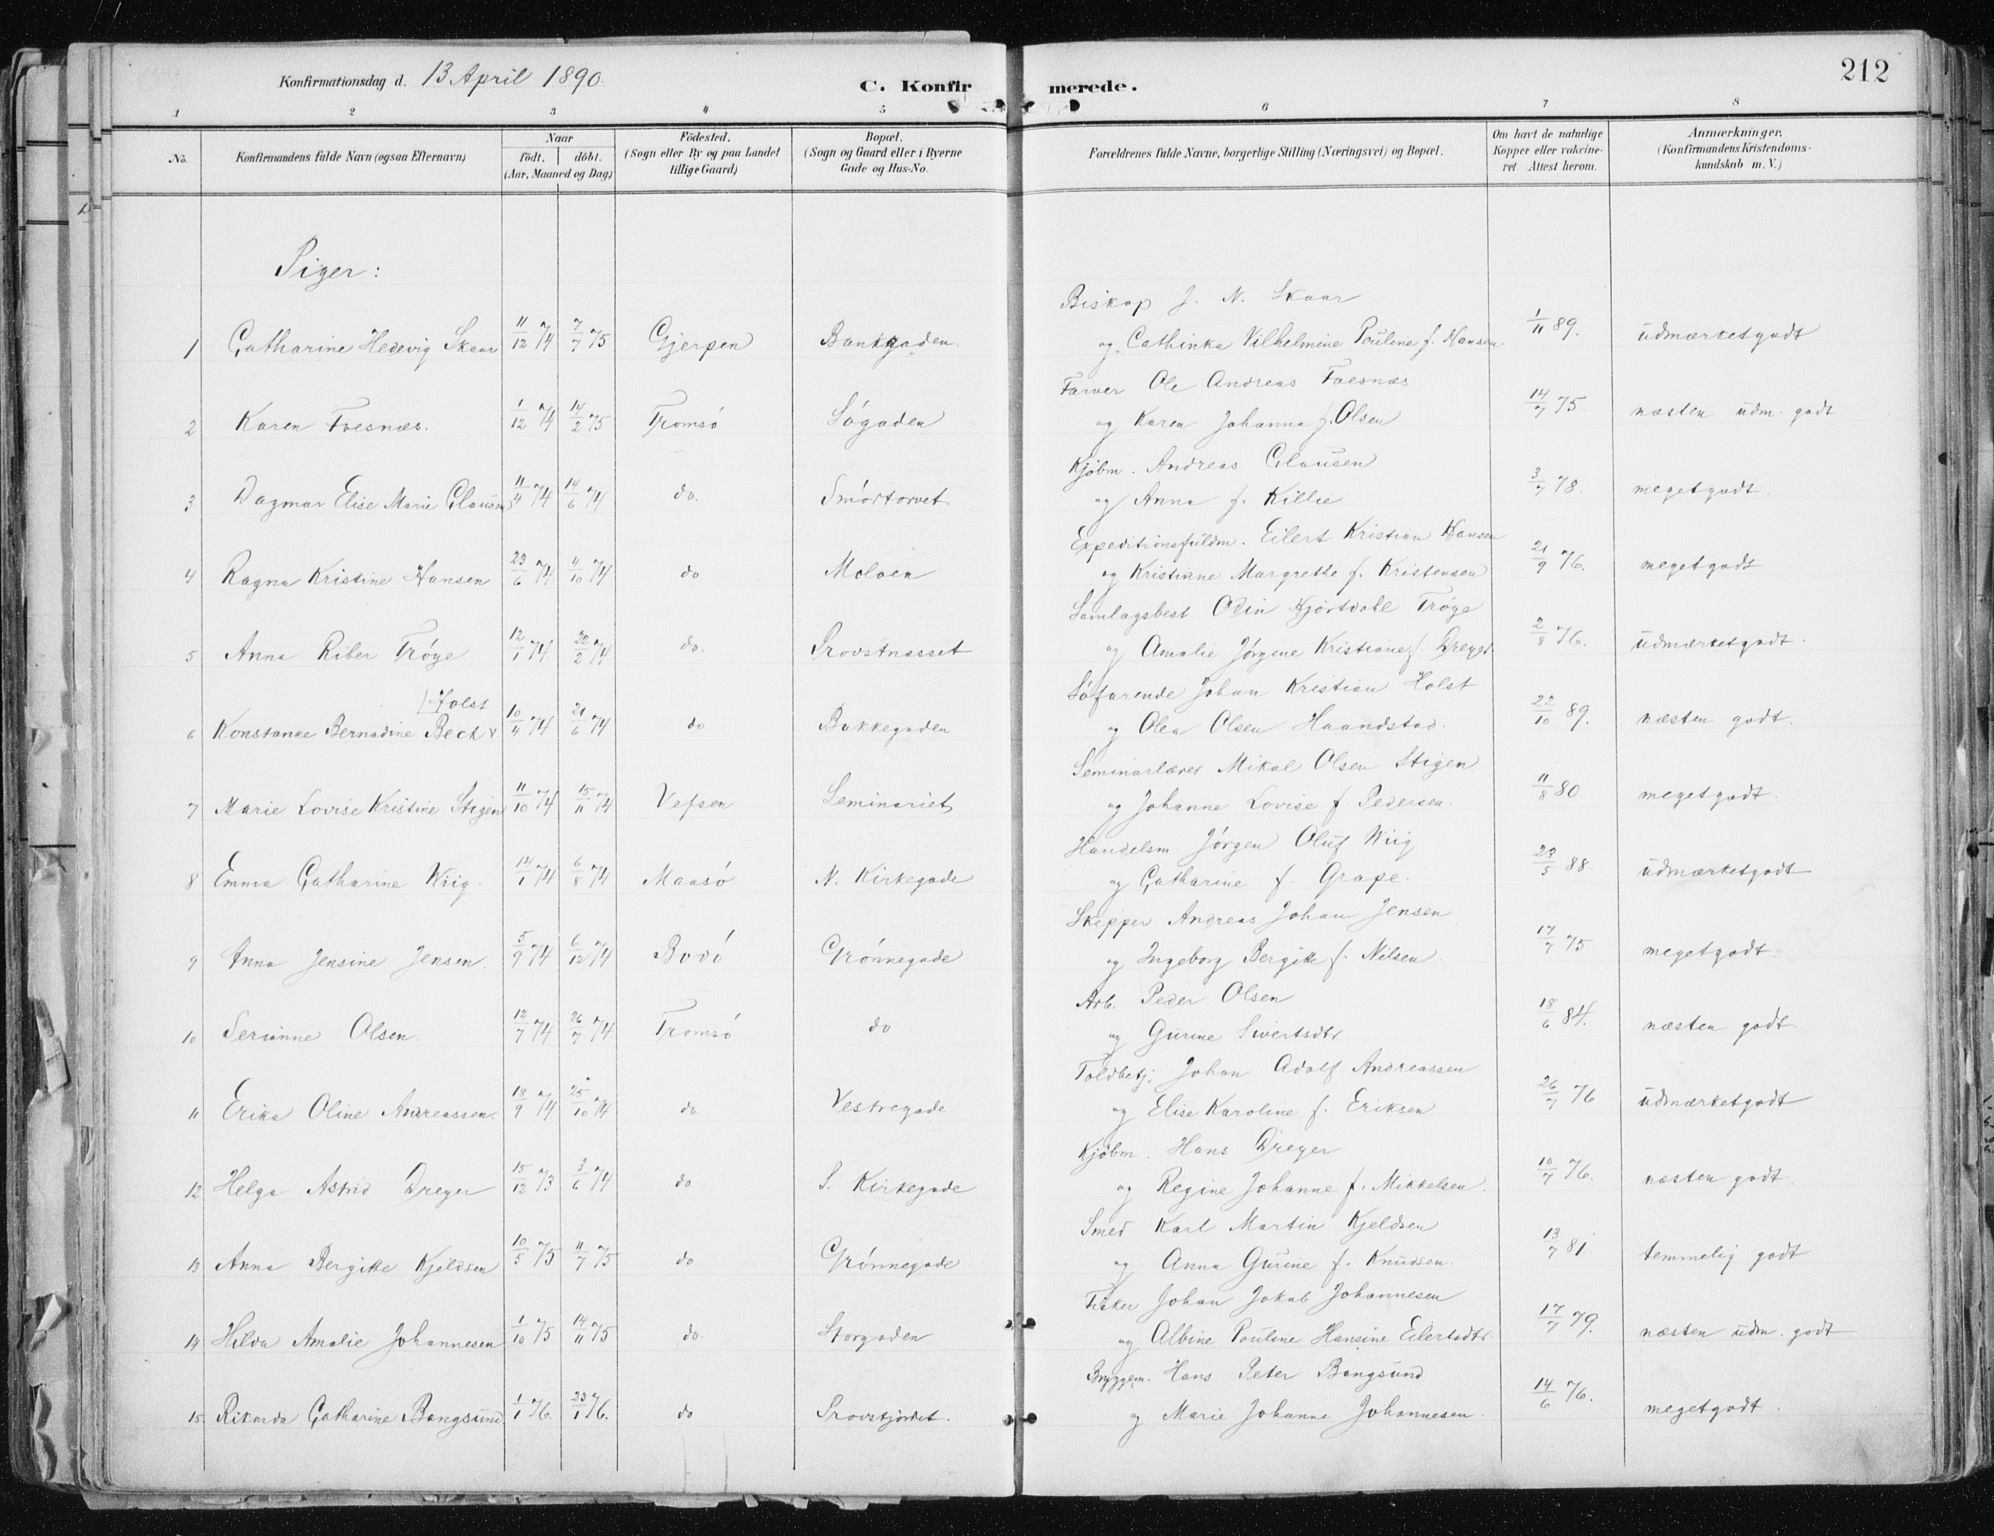 Konfirmationsdag d. 13 April 1890.
C. Konfir merede.
212
1 2 3 4 5 6 7 8
No.
Konfirmandens fulde Navn (ogsaa Efternavn)
Naar
födt. döbt.
(Aar, Maaned og Dag)
Födested.
(Sogn eller By og paa Landet
tillige Gaard)
Bopæl.
(Sogn og Gaard eller i Byerne
Gade og Hus-No.
Forældrenes fulde Navne, borgerlige Stilling (Næringsvei) og Bopæl.
Om havt de naturlige
Kopper eller vakcine-
ret. Attest herom.
Anmærkninger.
(Konfirmandens Kristendoms-
kundskab m. V.)
Piger:
Biskop J. N. Skaar
1 Catharine Hedevig Skaar 11/12 74 7/7 75 Gjerpen Bankgaden. og Cathinka Vilhelmine Pouline f. Hansen 1/11 89. udmærketgodt
Farver Ole Andreas Foesnæs
2 Karen Foesnæs. 1/12 74 14/2 75 Tromsó Sógaden og Karen Johanna f. Olsen 14/7 75. næsten udm. godt
Kjöbm. Andreas Clausen
3 Dagmar Elise Marie Clausen 11/4 74 14/6 74 do. Smórtorvet og Anna f. Killie 3/7 78. megetgodt.
Expeditionsfuldm. Eilert Kristian Hansen
4 Ragna Kristine Hansen 23/6 74 4/10 74 do Moloen og Kristinne Margrethe f. Kristensen 21/9 76. megetgodt
Samlagsbest. Odin Hjörtdahl Tróye
5 Anna Riber Tróye 12/1 74 22/2 74 do. Provstnæsset og Amalie Jórgine Kristiane f. Dreyer 2/8 76. udmærketgodt.
(Holst
Sófarende Johan Kristian Holst
6 Konstance Bernadine Beck 10/4 74 21/6 74 do Bakkegaden og Olea Olsen Haandstad. 22/10 89. næsten godt.
Seminarlærer Mikal Olsen Stigen
7 Marie Lovise Kristine Stigen 11/10 74 15/11 74 Vefsen Seminariet og Johanne Lovise f. Pedersen. 11/8 80. megetgodt.
Handelsm. Jórgen Oluf Wiig
8 Emma Catharine Wiig. 14/1 74 6/8 74 Maasó N. Kirkegade og Catharine f. Grape. 23/5 88 udmærketgodt
Skipper Andreas Johan Jensen
9 Anna Jensine Jensen. 5/9 74 6/12 74 Bodó Grónnegade og Ingeborg Bergitte f. Nilsen 17/7 75 megetgodt.
Arb. Peder Olsen
10 Serianne Olsen. 12/7 74 26/7 74 Tromsó do og Gurine Sivertsdtr 18/6 84. næsten godt.
Toldbetj. Johan Adolf Andreassen
11 Erika Oline Andreassen. 18/9 74 25/10 74 do. Vestregade. og Elise Karoline f. Eriksen 26/7 76 udmærketgodt
Kjöbm. Hans Dreyer
12 Helga Astrid Dreyer 15/12 73 3/6 74 do S. Kirkegade og Regine Johanne f. Mikkelsen. 10/7 76. næsten godt.
Smed Karl Martin Kjeldsen
13 Anna Bergitte Kjeldsen 10/5 75 11/7 75 do. Grónnegade og Anna Gurine f. Knudsen. 13/7 81 temmelig godt
Fisker Johan Jakob Johannesen
14 Hilda Amalie Johannesen 1/10 75 14/11 75 do. Storgaden og Albine Pouline Hansine Eilertsdtr. 17/7 79. næsten udm. godt
Bryggem. Hans Peter Bangsund
15. Rikarda Catharine Bangsund 1/1 76. 23/1 76. do Provstjordet. og Marie Johanna Johannesen. 14/6 76. megetgodt.